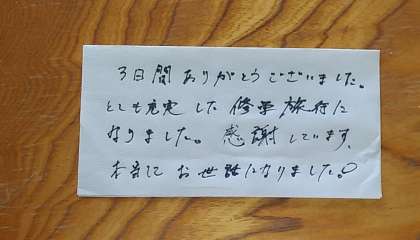 3日間ありがとうございました。
とても充実した修学旅行に
なりました。感謝しています。
本当にお世話になりました。